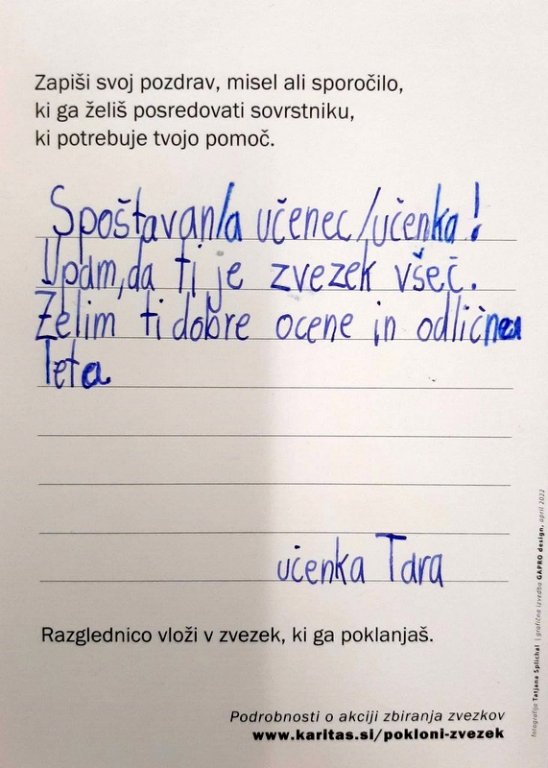 Zapiši svoj pozdrav, misel ali sporočilo,
ki ga želiš posredovati sovrstniku,
ki potrebuje tvojo pomoč.
Spoštavan/a učenec/učenka!
Upam, da ti je zvezek všeč.
Želim ti dobre ocene in odlična
leta
učenka Tara
Razglednico vloži v zvezek, ki ga poklanjaš.
Podrobnosti o akciji zbiranja zvezkov
www.karitas.si/pokloni-zvezek
fotografija Tatjana Splichal | grafična izvedba GAPRO design, april 2022